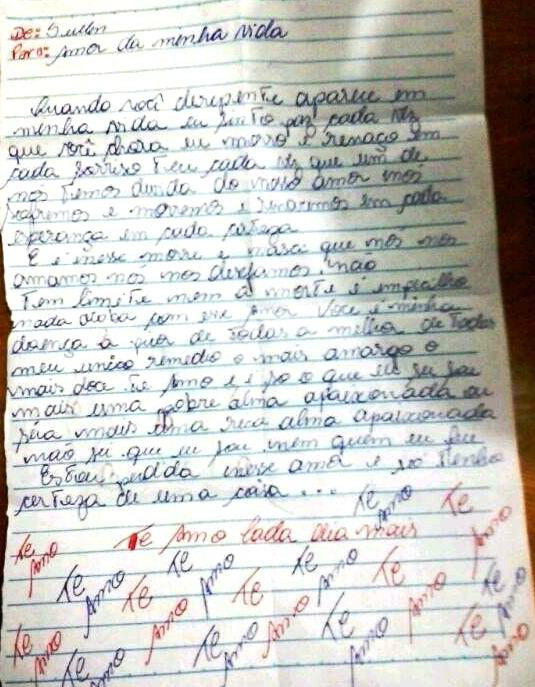 De: Suellen
Para: Amor da minha vida
Quando você derepente apareceu em
minha vida eu sinto paz cada vez
que você chora eu morro e renaço em
cada sorriso teu cada vez que um de
nós temos duvida do nosso amor nós
sofremos e morremos e renacemos em cada
esperança em cada certeza
E é nesse morre e nasce que nós nos
amamos nós nos desejamos, não
tem limite nem a morte é empecilho
nada acaba com esse amor Você é minha
doença a pior de todas a melhor de todas
meu unico remedio o mais amargo o
mais doce te Amo e é só o que eu sei sou
mais uma pobre alma apaixonada ou
seria mais uma rica alma apaixonada
não sei que eu sou nem quem eu fui
Estou perdida nesse amor e só tenho
certeza de uma coisa ...
Te Amo Te Amo
Te Amo Te Amo Cada dia mais
Te Amo Te Amo Te Amo Te Amo
Te Amo Te Amo Te Amo
Te Amo Te Amo Te Amo Te Amo
Te Amo